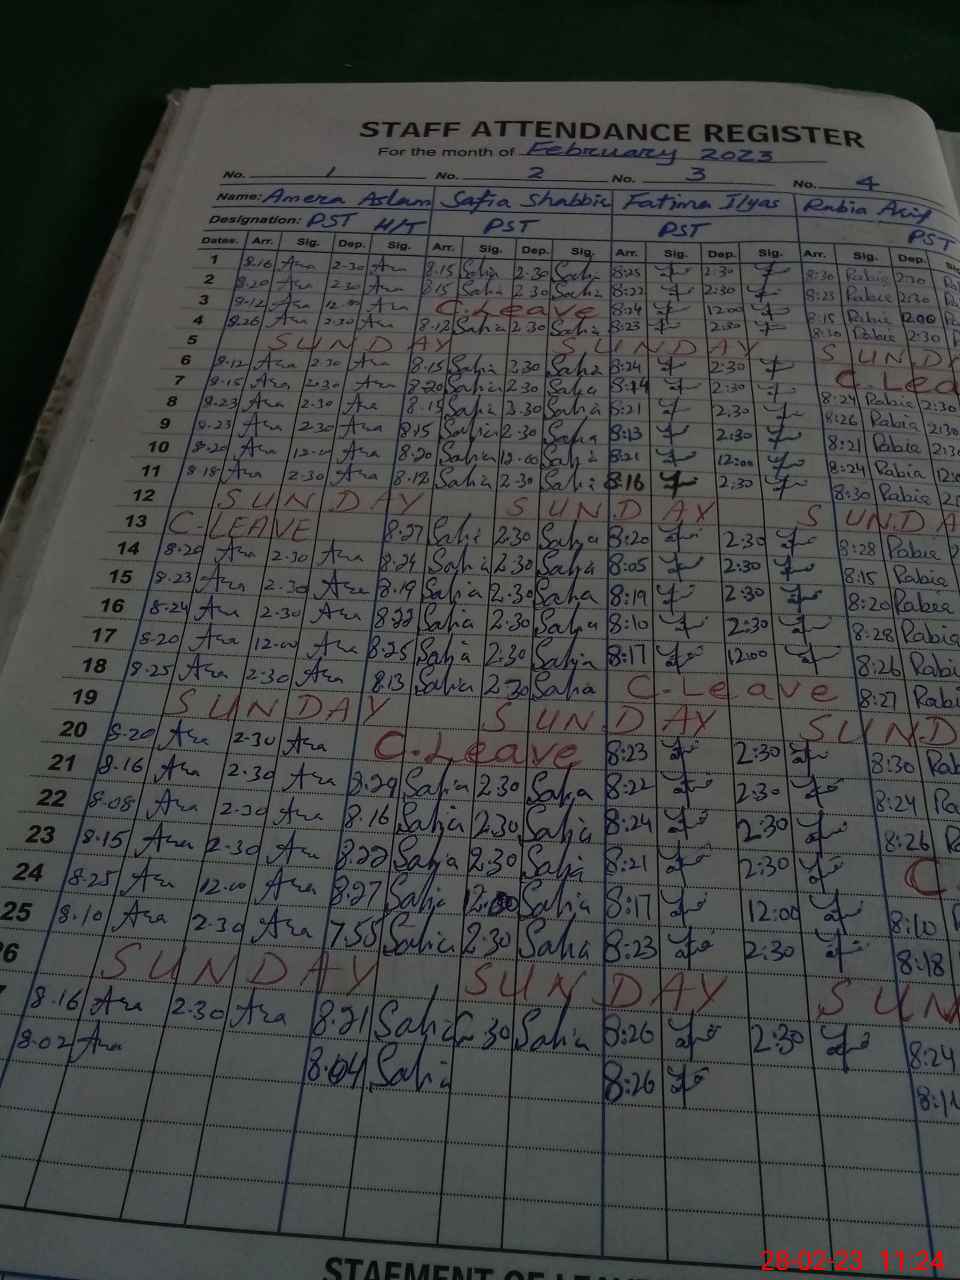 STAFF ATTENDANCE REGISTER
For the month of February 2023
No. 1 No. 2 No. 3 No. 4
Name: Amera Aslam Safia Shabbir Fatima Ilyas Rabia Asif
Designation: PST H/T PST PST PST
Dates. Arr. Sig. Dep. Sig. Arr. Sig. Dep. Sig. Arr. Sig. Dep. Sig. Arr. Sig. Dep.
1 8.16 2.30 8.15 Safia 2.30 Safia 8:25 2:30 8:30 Rabia 2:30
2 8.20 2.30 8.15 Safia 2.30 Safia 8:22 2:30 8:25 Rabia 2:30
3 8.12 12.00 C.Leave 8:24 12:00 8:15 Rabia 12:00
4 8.26 2.30 8.12 Safia 2.30 Safia 8:23 2:30 8:30 Rabia 2:30
5 SUNDAY SUNDAY SUND
6 8.12 2.30 8.15 Safia 2.30 Safia 8:24 2:30 C.Lea
7 8.15 2.30 8.20 Safia 2.30 Safia 8:14 2:30 8:24 Rabia 2:30
8 8.23 2.30 8.15 Safia 2.30 Safia 8:21 2:30 8:26 Rabia 2:30
9 8.23 2.30 8.15 Safia 2.30 Safia 8:13 2:30 8:21 Rabia
10 8.20 12.00 8.20 Safia 12.00 Safia 8:21 12:00 8:24 Rabia
11 8.18 2.30 8.18 Safia 2.30 Safia 8:16 2:30 8:30 Rabia
12 SUNDAY SUNDAY SUNDA
13 C-LEAVE 8.27 Safia 2.30 Safia 8:20 2:30 8:28 Rabia
14 8.20 2.30 8.24 Safia 2.30 Safia 8:05 2:30 8:15 Rabia
15 8.23 2.30 8.19 Safia 2.30 Safia 8:19 2:30 8:20 Rabia
16 8.24 2.30 8.22 Safia 2.30 Safia 8:10 2:30 8:28 Rabia
17 8.20 12.00 8.25 Safia 2.30 Safia 8:17 12:00 8:26 Rabi
18 8.25 2.30 8.13 Safia 2.30 Safia C.Leave 8:27 Rabi
19 SUNDAY SUNDAY SUND
20 8.20 2.30 C.Leave 8:23 2:30 8:30 Rab
21 8.16 2.30 8.29 Safia 2.30 Safia 8:22 2:30 8:24 Ra
22 8.08 2.30 8.16 Safia 2.30 Safia 8:24 2:30 8:26
23 8.15 2.30 8.22 Safia 2.30 Safia 8:21 2:30 C.
24 8.25 12.00 8.27 Safia 12.00 Safia 8:17 12:00 8:10
25 8.10 2.30 7.55 Safia 2.30 Safia 8:23 2:30 8:18
26 SUNDAY SUNDAY SUN
8.16 2.30 8.21 Safia 2.30 Safia 8:26 2:30 8:24
8.02 8.04 Safia 8:26
STAEMENT OF LEAVE
28-02-23 11:24